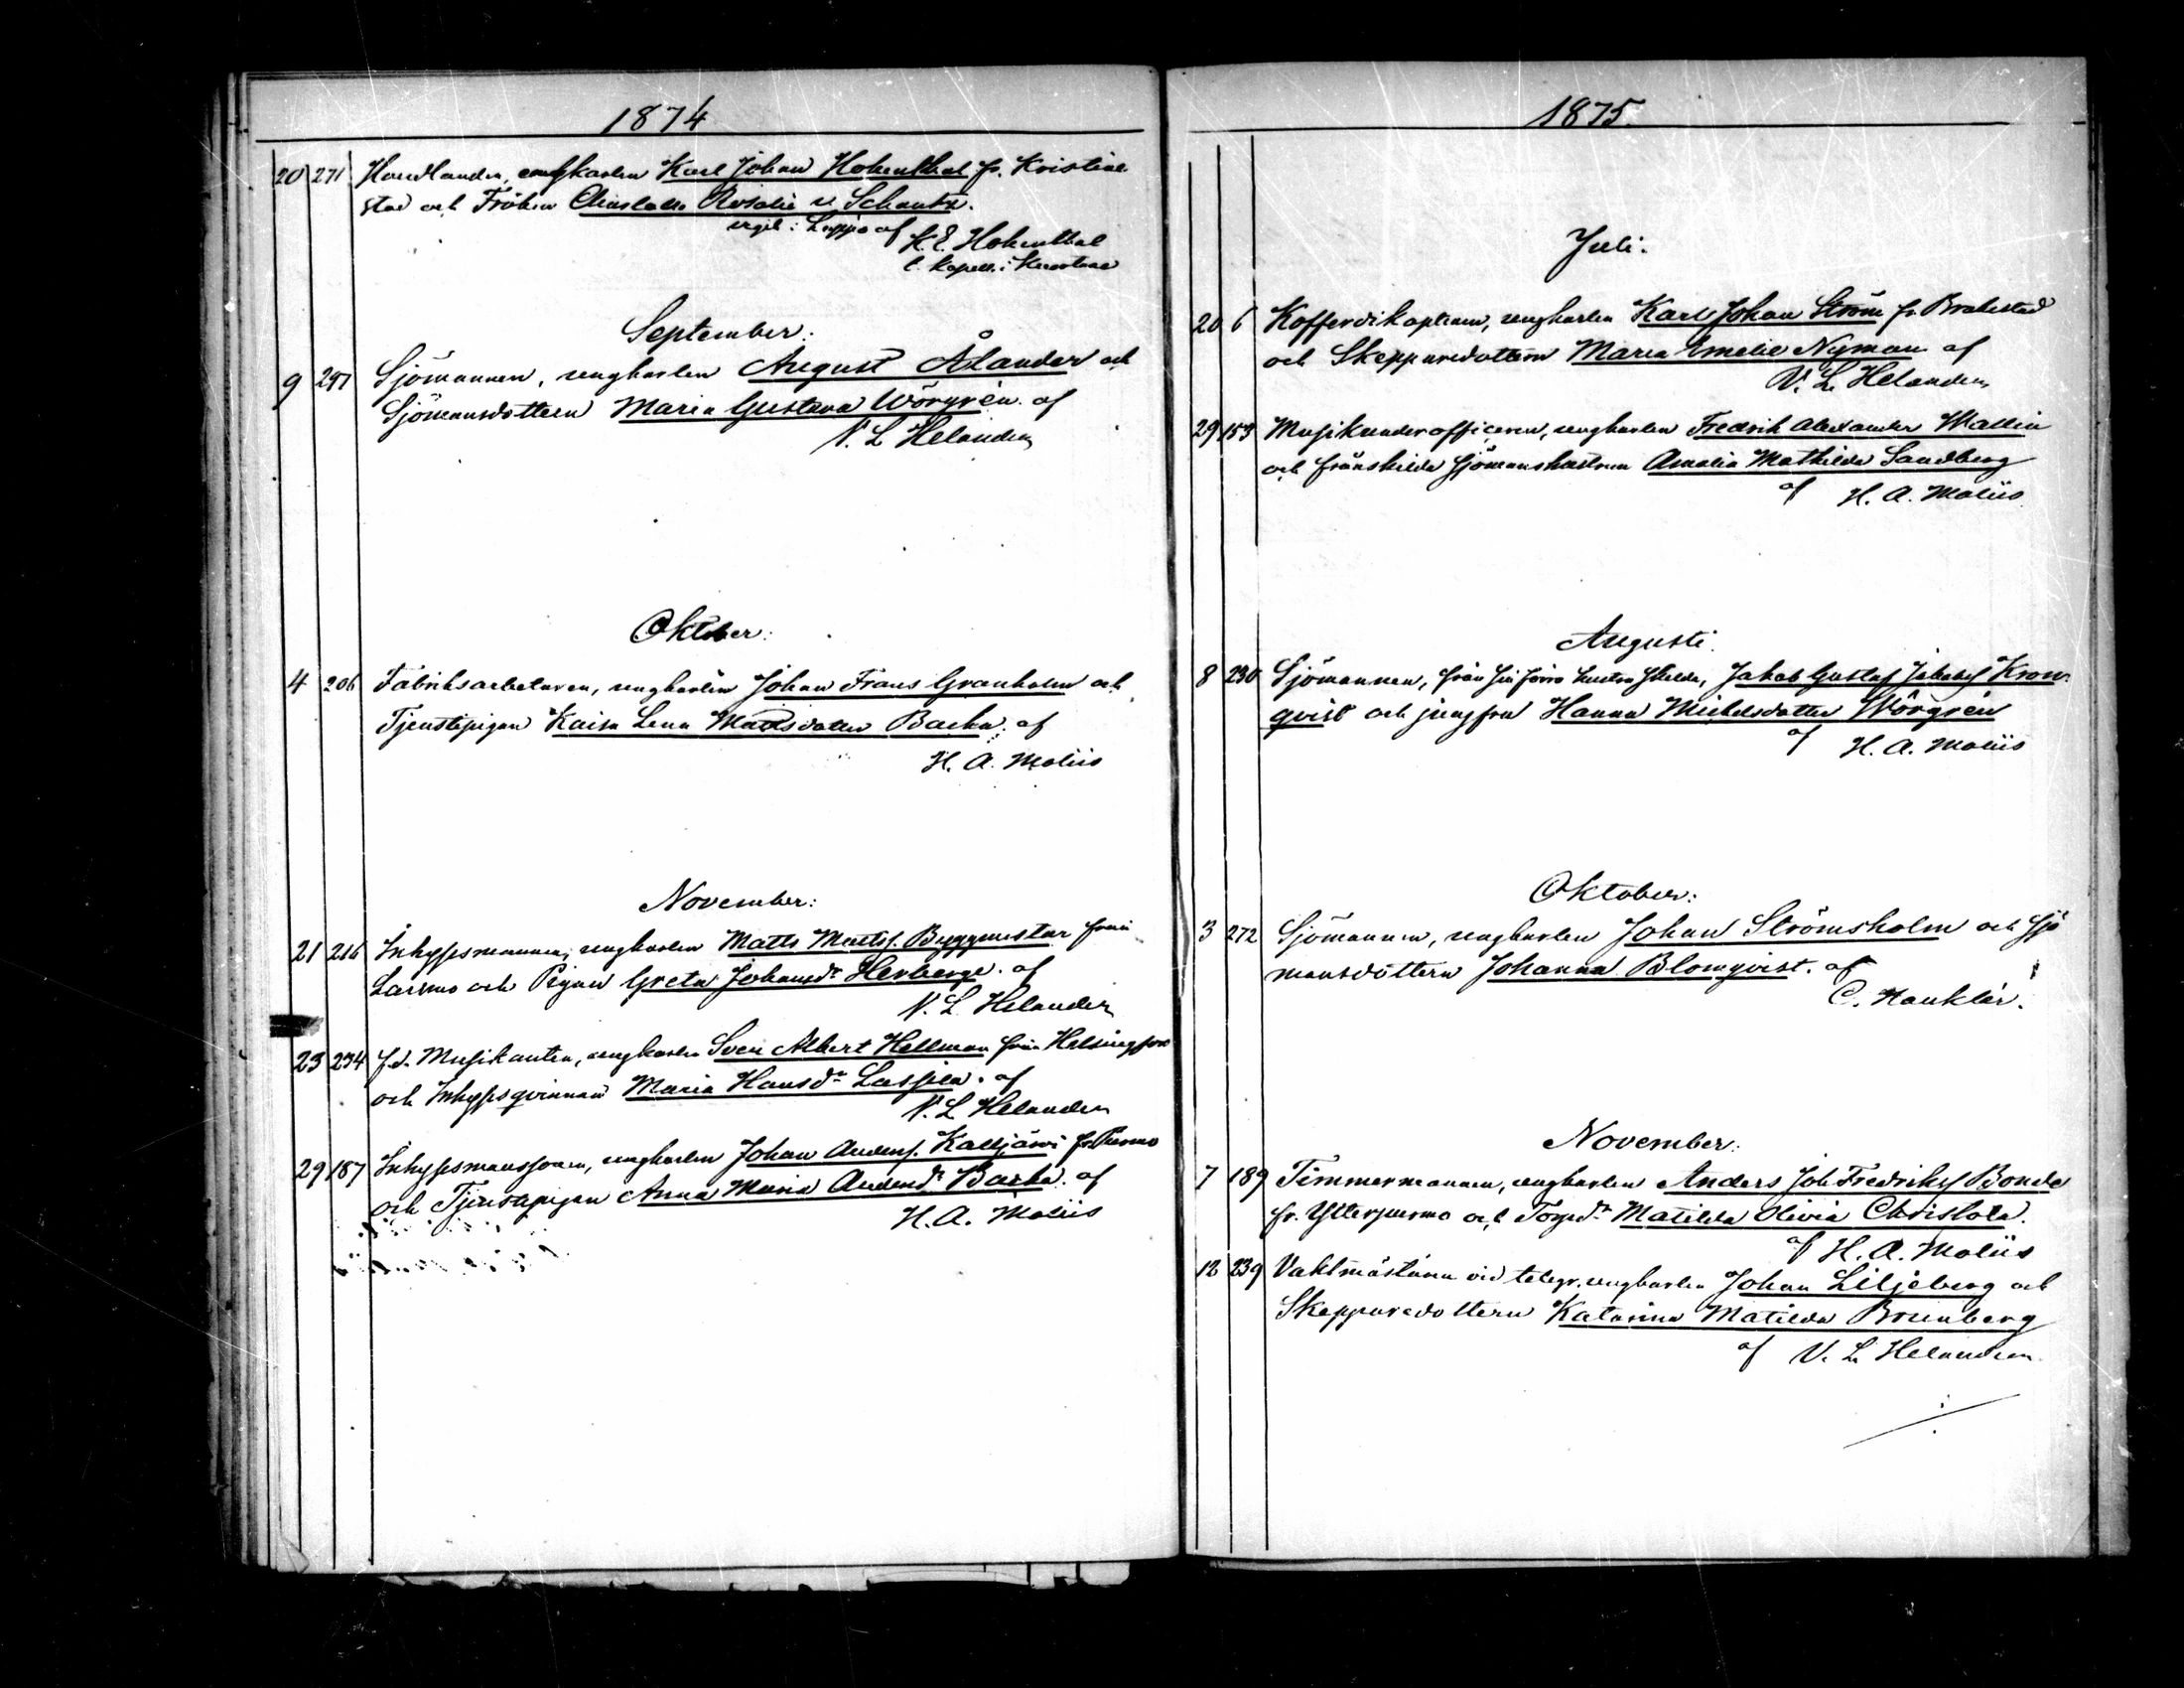 1874
20 271 Handlanden, ungkarlen Karl Johan Hohenthal fr. Kristine
stad och Fröken Charlotta Rosalie v. Schantz.
vigd i Lappo af K. E. Hohenthal
September:
9 297 Sjömannen, ungkarlen August Ålander och
Sjömansdottern Maria Gustava Wörgrén. af
V. L Helander
Oktober:
4 206 Fabriksarbetaren, ungkarlen Johan Frans Granholm och
Tjenstepigan Kaisa Lena Mattsdotter Backa. af
H. A. Moliis
November:
21 216 Inhysesmannen, ungkarlen Matts Mattss. Byggmestar från
Larsmo och Pigan Greta Johansdr Herberge. af
V. L Helander
23 234 f.d. Musikanten, ungkarlen Sven Albert Hellman från Helsingfors
och Inhysesqvinnan Maria Hansdr Lassila. af
V. L Helander
29 187 Inhysesmanssonen, ungkarlen Johan Anderss. Kalljärvi fr. Purmo
och Tjenstepigan Anna Maria Andersdr Backa. af
H. A. Moliis
1875.
Juli.
20 6 Kofferdikaptenen, ungkarlen Karl Johan Ström fr. Brahestad
och Skepparedottern Maria Emelie Nyman af
V. L. Helander
29 153 Musikunderofficeren, ungkarlen Fredrik Alexander Wallin
och frånskilda sjömanshustrun Amalia Mathilda Sandberg
af H. A. Moliis
Augusti.
8 230 Sjömannen, från sin förra hustru skilde, Jakob Gustaf Jakobss Kron-
qvist och jungfru Hanna Michelsdotter Wörgrén
af H. A. Moliis
Oktober:
3 272 Sjömannen, ungkarlen Johan Strömsholm och sjö
mansdottern Johanna Blomqvist. af
C.
November:
7 189 Timmermannen, ungkarlen Anders Joh. Fredrikss Bonde
fr. Ytterpurmo och Torpdr Matilda Olivia Chrislota.
af H. A. Moliis
12 239 Vaktmästaren vid telegr. ungkarlen Johan Liljeberg och
Skepparedottern Katarina Matilda Brunberg
af V. L. Helander